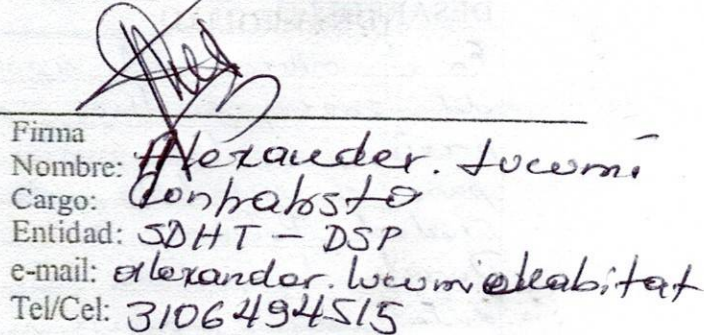 Firma
Nombre: Alexander. Lucumí
Cargo: Contratista
Entidad: SDHT - DSP
e-mail: alexander.lucumi@habitat
Tel/Cel: 3106494515